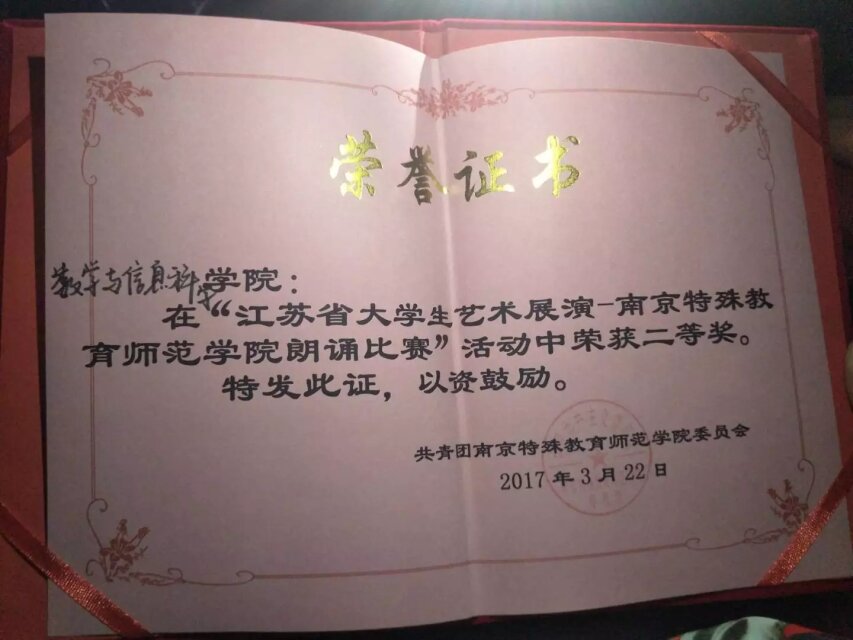 荣誉证书
数学与信息科学学院：
在“江苏省大学生艺术展演-南京特殊教
育师范学院朗诵比赛”活动中荣获二等奖。
特发此证，以资鼓励。
共青团南京特殊教育师范学院委员会
2017年3月22日